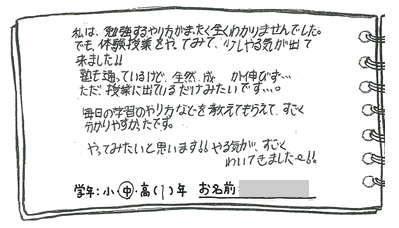 私は、勉強するやり方がまったく全くわかりませんでした。
でも、体験授業をやってみて、少しやる気が出て
来ました!!
塾も通っているけど、全然、成 が伸びず…
ただ、授業に出ているだけみたいです…。
毎日の学習のやり方などを教えてもらえて、すごく
分かりやすかったです。
やってみたいと思います!! やる気が、すごく
わいてきました〜!!
学年:小・中・高(1)年 お名前: